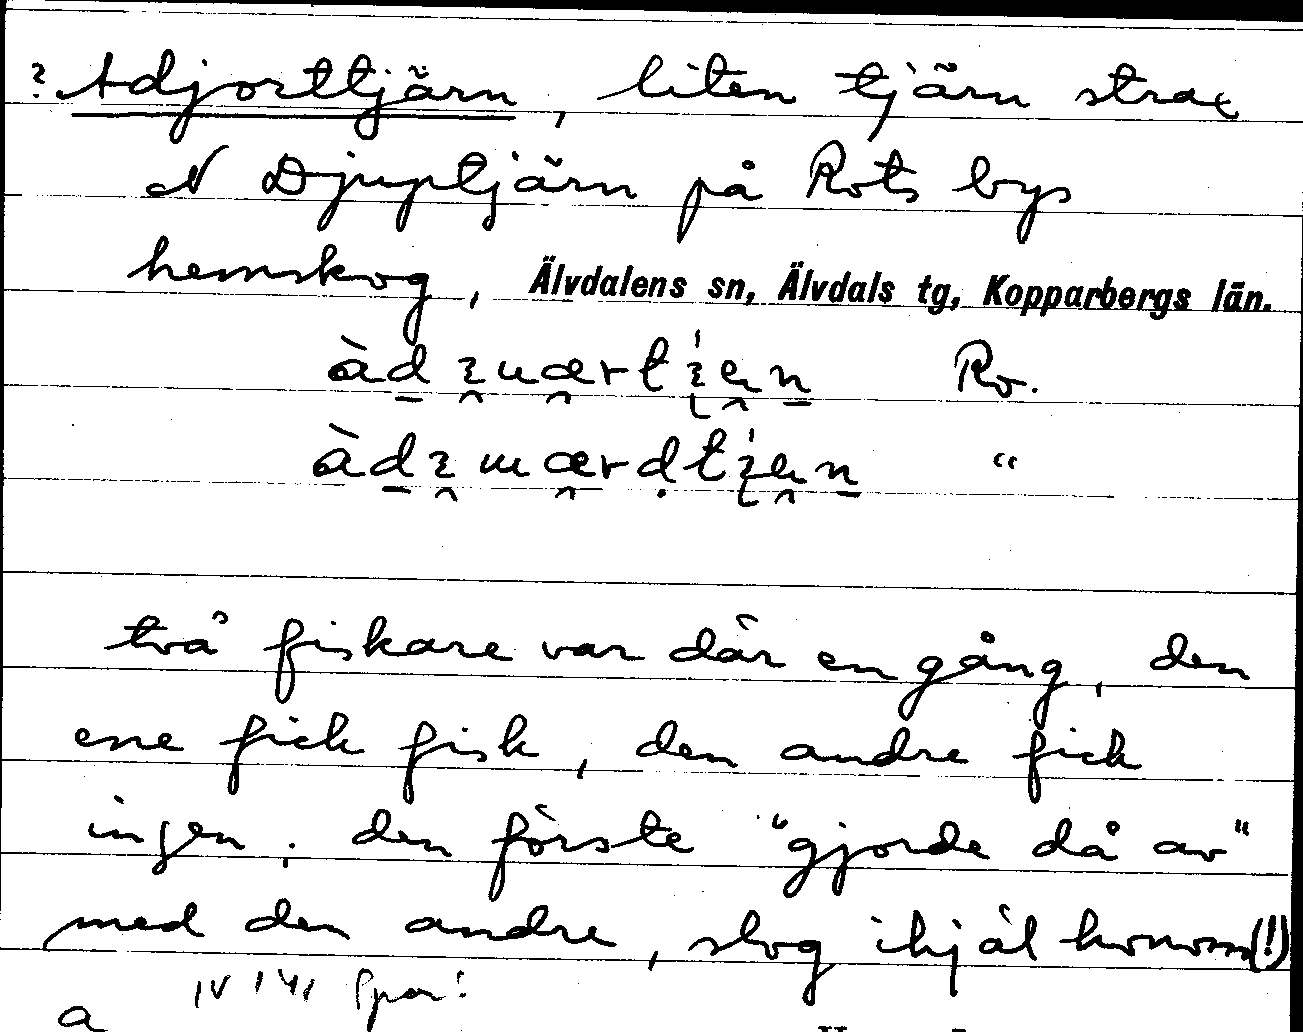 ? Adjorttjärn, liten tjärn strax
N Djuptjärn på Rots bys
hemskog, Älvdalens sn, Älvdals tg, Kopparbergs län.
Ro.
"
två fiskare var där en gång, den
ene fick fisk, den andre fick
ingen; den förste "gjorde då av"
med den andre, slog ihjäl honom(!)
a